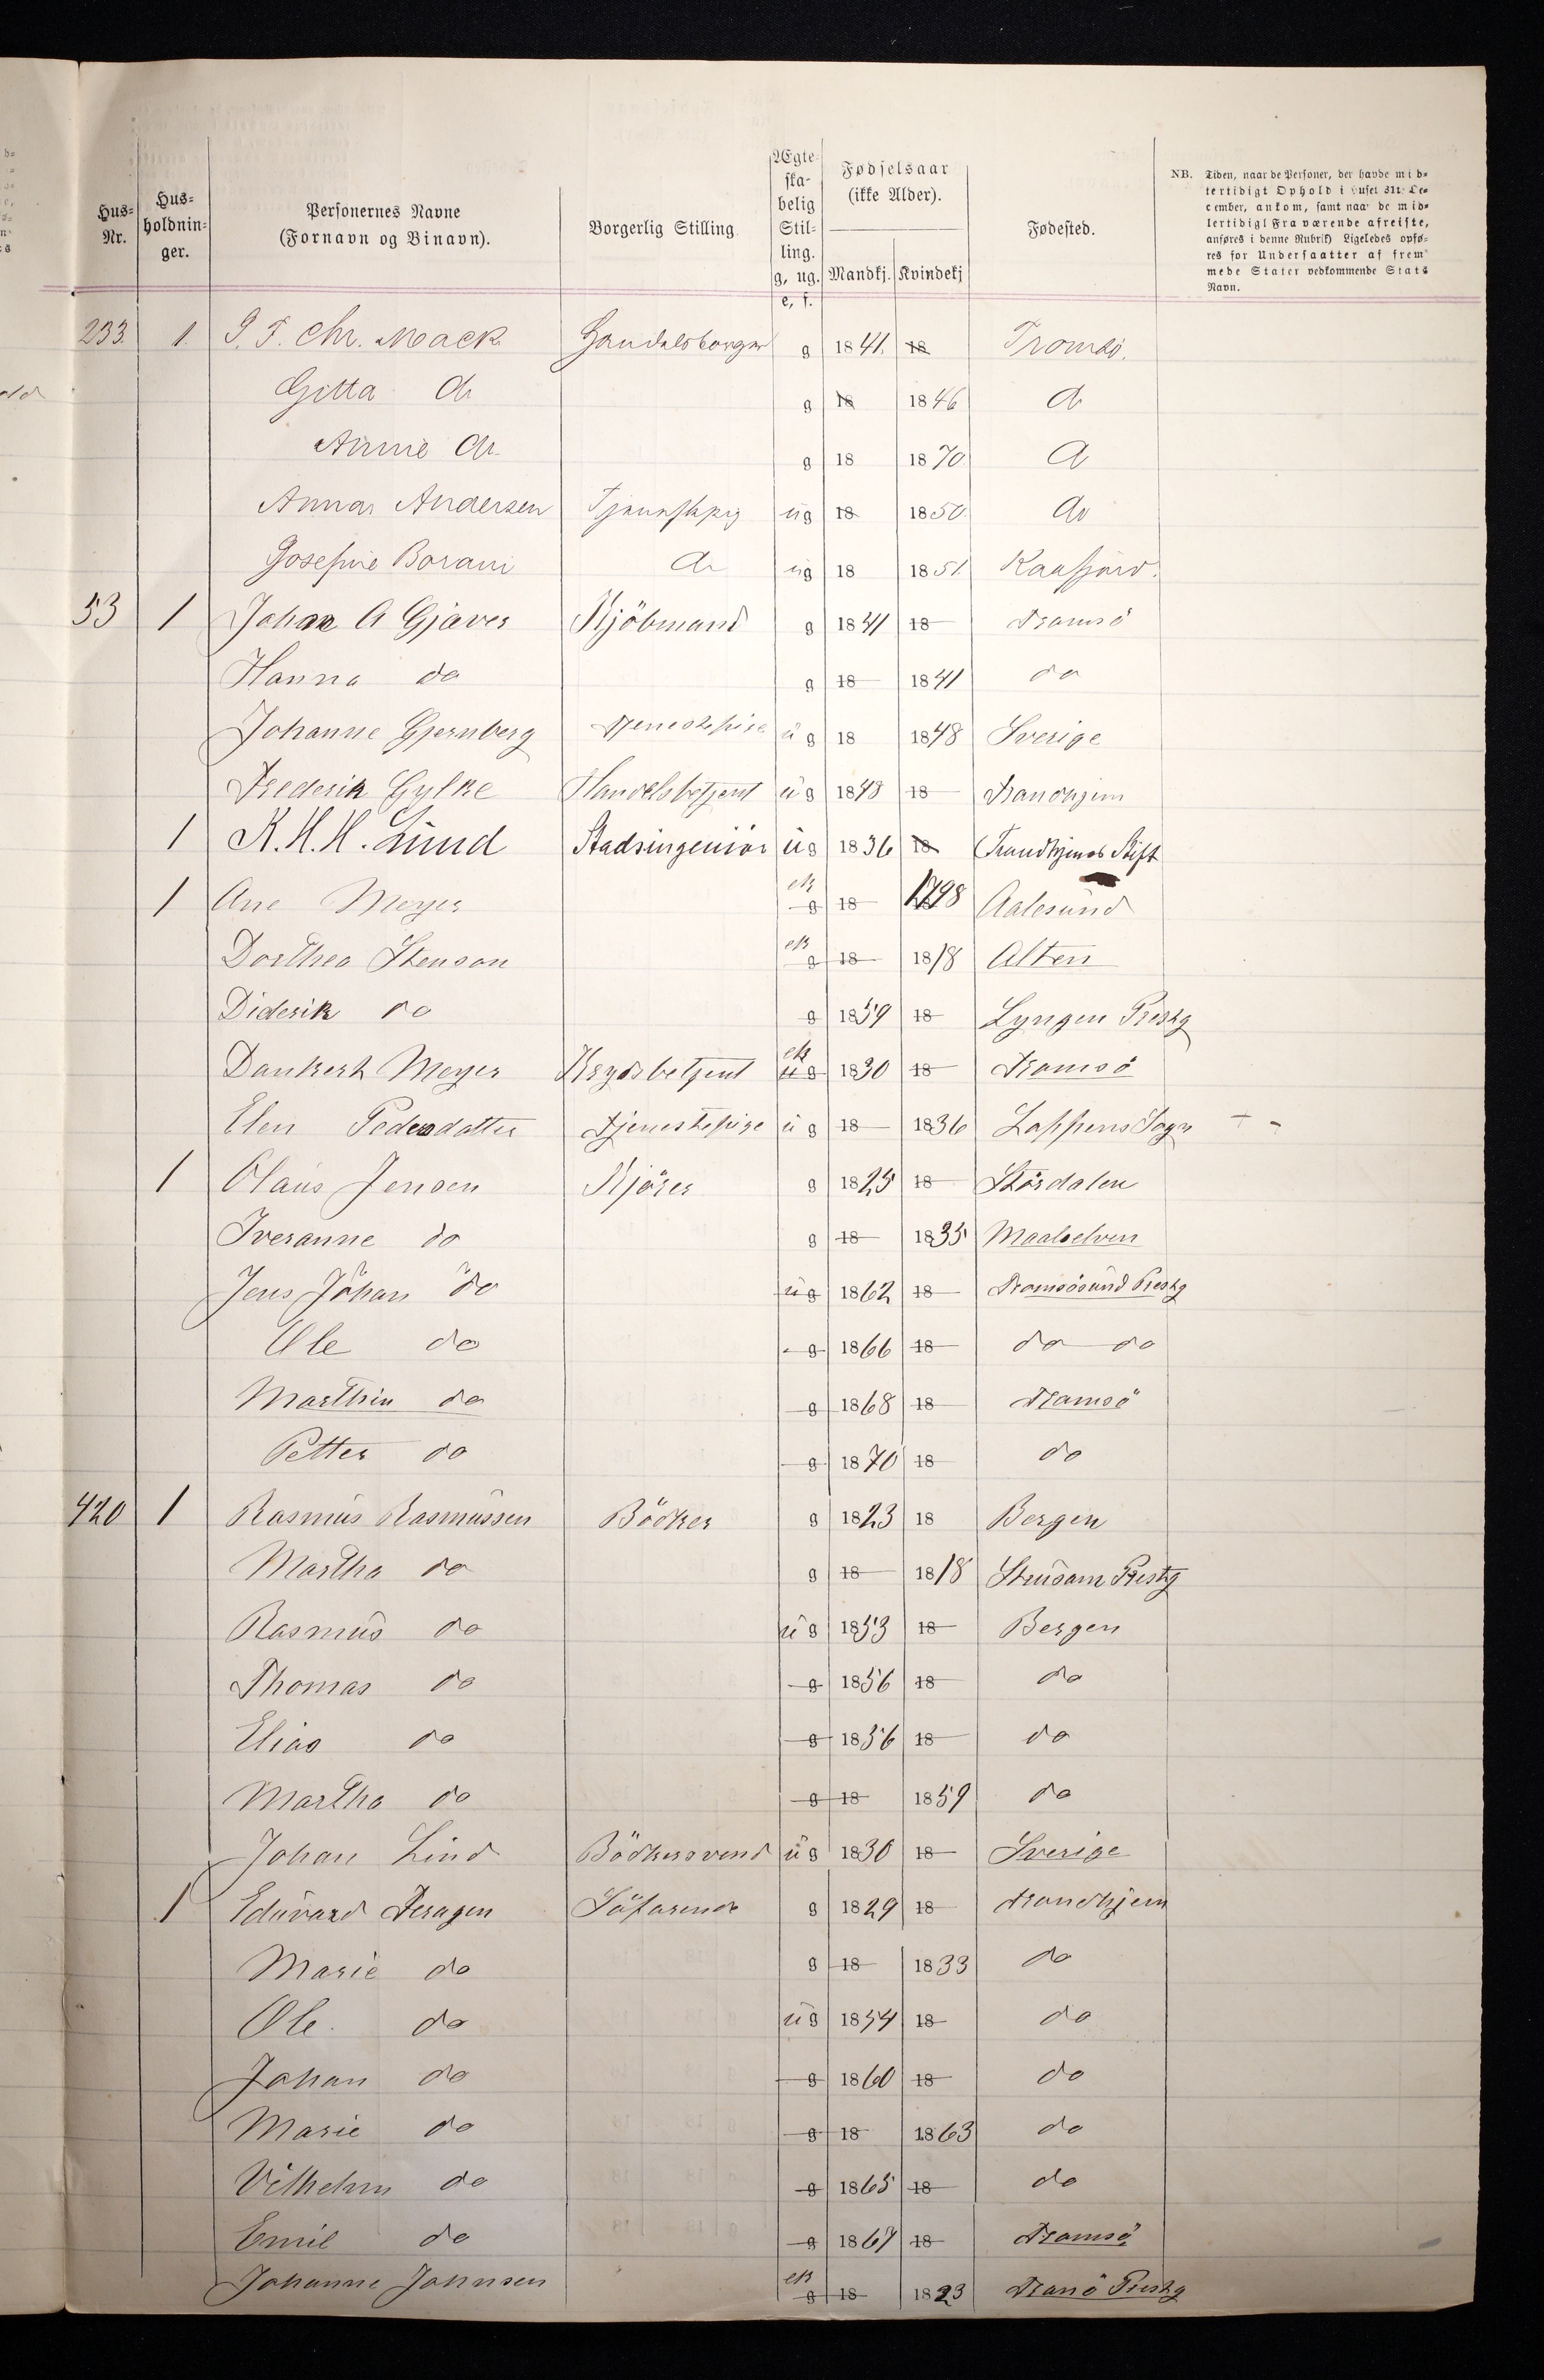 Hus-Nr.
Hus-holdnin-ger.
Personernes Navne (Fornavn og Binavn).
Borgerlig Stilling
Ægte-ska-belig Stil-ling. g, ug. e, f.
Fødselsaar (ikke Alder).
Mandkj. Kvindekj
Fødested.
NB. Tiden, naar de Personer, der havde mid-
lertidigt Ophold i Huset 31te De-
cember, ankom, samt naar de mid-
lertidigt Fraværende afreiste,
anføres i denne Rubrik) Ligeledes opfø-
res for Undersaatter af frem
mede Stater vedkommende Stats
Navn.
233. 1. Chr. Mack Handelsborger g 1841. 18 Tromsö.
Gitta do g 18 1846 do
Annie do g 18 1870 do
Anna Andersen Tjenestepig ug 18 1850 do
Josefine Borani do ug 18 1851. Kaafjord.
53 1 Johan A Gjæver Kjöbmand g 1841 18 Tromsö
Hanna do g 18 1841 do
Johanne Gjernberg Tjenestepige ug 18 1848 Sverige
Frederik Gylke Handelsbetjent ug 1848 18 Trondhjem
1 K. H. H. Lund Stadsingeniör ug 1836 18 Trondhjems Stift
1 Ane Meyer ek g 18 1798 Aalesund
Dorthea Stenson ek g 18 1818 Alten
Diderik do g 1859 18 Lyngen Prestg
Dankert Meyer Krydsbetjent ek ug 1830 18 Tromsö
Elen Pedersdatter Tjenestepige ug 18 1836 Lappens Sogn
1 Olaus Jensen Kjörer g 1825 18 Stördalen
Iveranne do g 18 1835 Maalselven
Jens Johan do ug 1862 18 Tromsösund Prestg
Ole do g 1866 18 do do
Marthin do g 1868 18 Tromsö
Petter do g 1870 18 do
420 1 Rasmus Rasmussen Bödker g 1823 18 Bergen
Martha do g 18 1818 Strusam Prestg
Rasmus do ug 1853 18 Bergen
Thomas do g 1856 18 do
Elias do g 1856 18 do
Martha do g 18 1859 do
Johan Lind Bödkersvend ug 1830 18 Sverige
1 Eduvard Teragen Söfarende g 1829 18 Trondhjem
Marie do g 18 1833 do
Ole do ug 1854 18 do
Johan do g 1860 18 do
Marie do g 18 1863 do
Vilhelm do g 1865 18 do
Emil do g 1867 18 Tromsö
Johanne Johnsen ek g 18 1823 Tranö Prestg